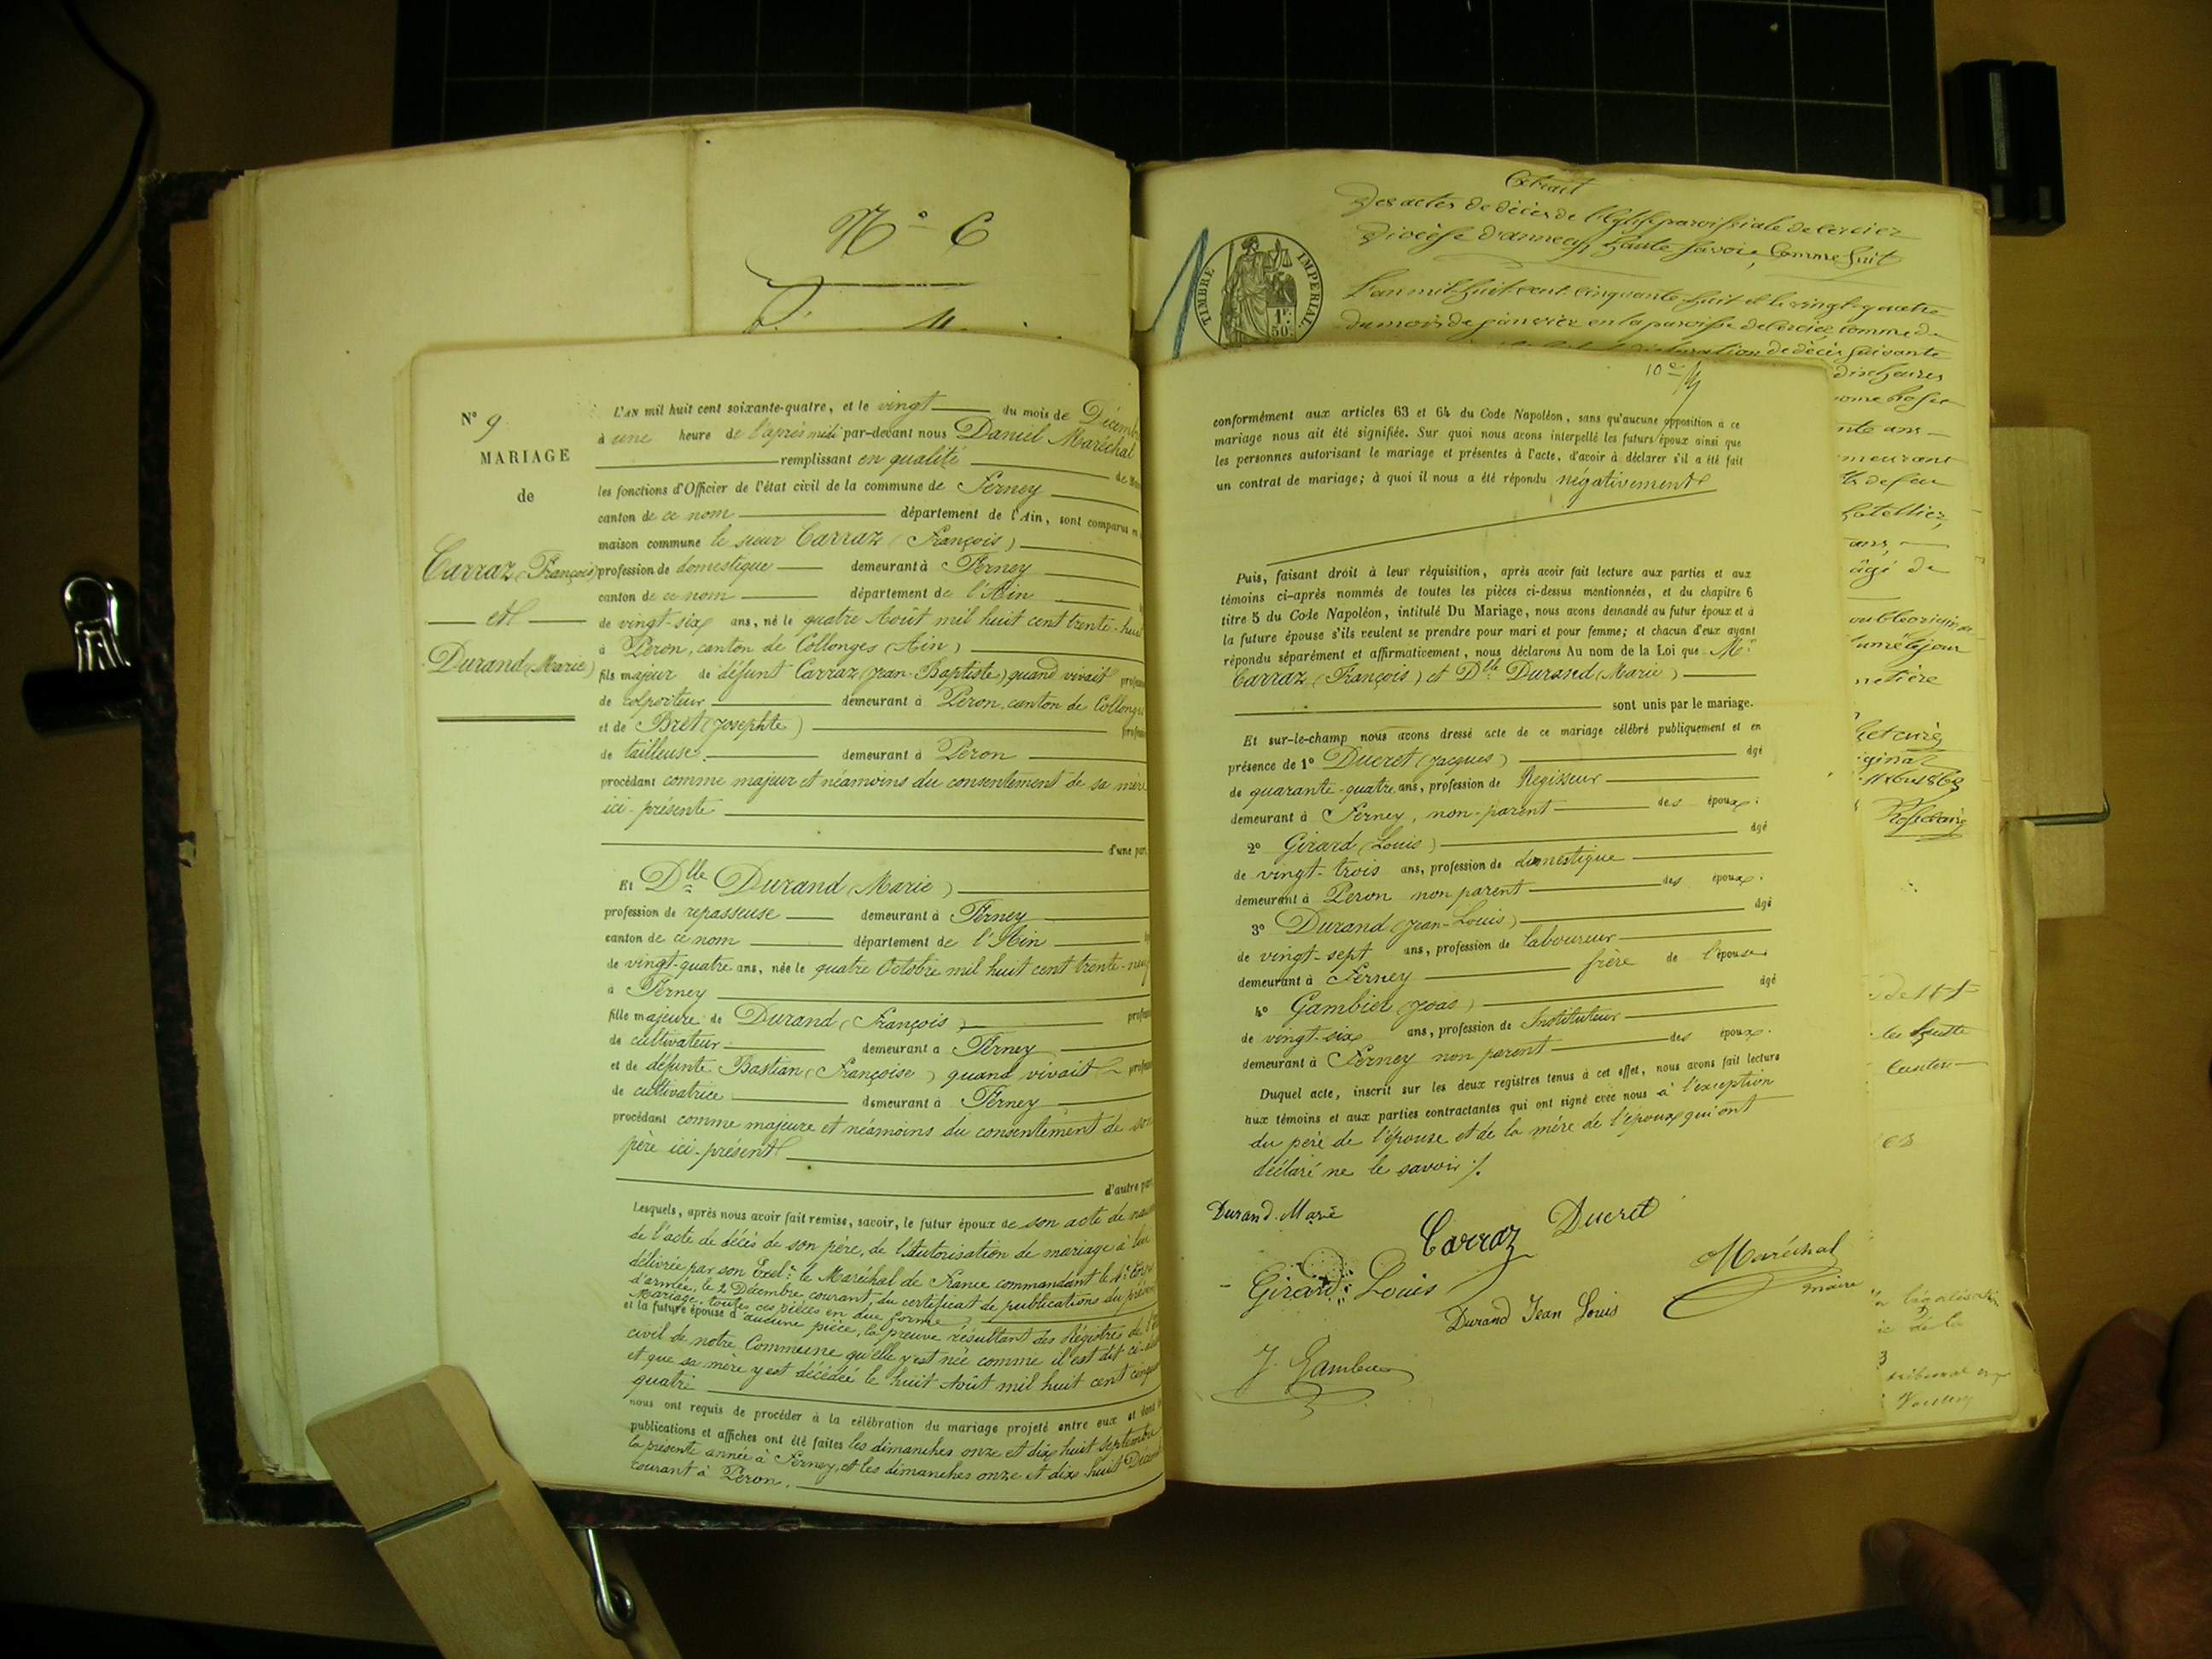 N° 6
N° 9
MARIAGE
de
Carraz (François)
et
Durand (Marie)
L'AN mil huit cent soixante-quatre, et le vingt du mois de Décem
à une heure de l'après midi par-devant nous Daniel Maréchal
remplissant en qualité de
les fonctions d'Officier de l'état civil de la commune de Ferney
canton de ce nom département de l'Ain, sont comparus en
maison commune le sieur Carraz (François)
profession de domestique demeurant à Ferney
canton de ce nom département de l'Ain
de vingt-six ans, né le quatre Août mil huit cent trente-huit
à Péron, canton de Collonges (Ain)
fils majeur de défunt Carraz (Jean-Baptiste) quand vivait profess
de colporteur demeurant à Péron, canton de Collonges
et de Bret (Josephte) profess
de tailleuse demeurant à Péron
procédant comme majeur et néamoins du consentement de sa mère
ici-présente
d'une part
Et Dlle Durand (Marie)
profession de repasseuse demeurant à Ferney
canton de ce nom département de l'Ain
de vingt-quatre ans, née le quatre Octobre mil huit cent trente-neuf
à Ferney
fille majeure de Durand (François) profess
de cultivateur demeurant à Ferney
et de défunte Bastian (Françoise) quand vivait profess
de cultivatrice demeurant à Ferney
procédant comme majeure et néamoins du consentement de son
père ici-présent
d'autre part
Lesquels, après nous avoir fait remise, savoir, le futur époux de son acte de nais
de l'acte de décès de son père, de l'Autorisation de mariage à lui
délivrée par son Excl. le Maréchal de France commandant le 4e Corps
d'armée, le 2 Décembre courant, du certificat de publications du présent
Mariage, toutes ces pièces en due forme
et la future épouse d'aucune pièce, la preuve résultant des Régistres de l'Etat
civil de notre Commune qu'elle y est née comme il est dit ci-
et que sa mère y est décédée le huit Août mil huit cent cinquante
quatre
nous ont requis de procéder à la célébration du mariage projeté entre eux et dont les
publications et affiches ont été faites les dimanches onze et dix huit septembre
la présente année à Ferney, et les dimanches onze et dix-huit Décem
courant à Péron.
Extrait
Des actes de décès de l'Eglise paroissiale de Cercier
Diocèse d'annecy, haute Savoie, Comme Suit
L'an mil huit cent cinquante huit et le vingt-quatre
du mois de janvier en la paroisse de Cercier, commune de
TIMBRE IMPERIAL
1F. 50c.
de décès suivante
dix heures
ans
hôtellier,
ans,
âgé de
10e
conformément aux articles 63 et 64 du Code Napoléon, sans qu'aucune opposition à ce
mariage nous ait été signifiée. Sur quoi nous avons interpellé les futurs époux ainsi que
les personnes autorisant le mariage et présentes à l'acte, d'avoir à déclarer s'il a été fait
un contrat de mariage; à quoi il nous a été répondu négativement
Puis, faisant droit à leur réquisition, après avoir fait lecture aux parties et aux
témoins ci-après nommés de toutes les pièces ci-dessus mentionnées, et du chapitre 6
titre 5 du Code Napoléon, intitulé Du Mariage, nous avons demandé au futur époux et à
la future épouse s'ils veulent se prendre pour mari et pour femme; et chacun d'eux ayant
répondu séparément et affirmativement, nous déclarons Au nom de la Loi que Mr
Carraz (François) et Dlle Durand (Marie)
sont unis par le mariage.
Et sur-le-champ nous avons dressé acte de ce mariage célébré publiquement et en
présence de 1° Ducret (Jacques) âgé
de quarante-quatre ans, profession de Regisseur
demeurant à Ferney, non-parent des époux.
2° Girard (Louis) âgé
de vingt-trois ans, profession de domestique
demeurant à Péron non parent des époux.
3° Durand (Jean-Louis) âgé
de vingt-sept ans, profession de laboureur
demeurant à Ferney frère de l'épouse
4° Gambier (Joas) âgé
de vingt-six ans, profession de Instituteur
demeurant à Ferney non parent des époux.
Duquel acte, inscrit sur les deux registres tenus à cet effet, nous avons fait lecture
aux témoins et aux parties contractantes qui ont signé avec nous à l'exception
du père de l'épouse et de la mère de l'époux qui ont
déclaré ne le savoir ./.
Durand Marie
Carraz Ducret
Girard Louis
Maréchal
maire
Durand Jean Louis
J. Gambier